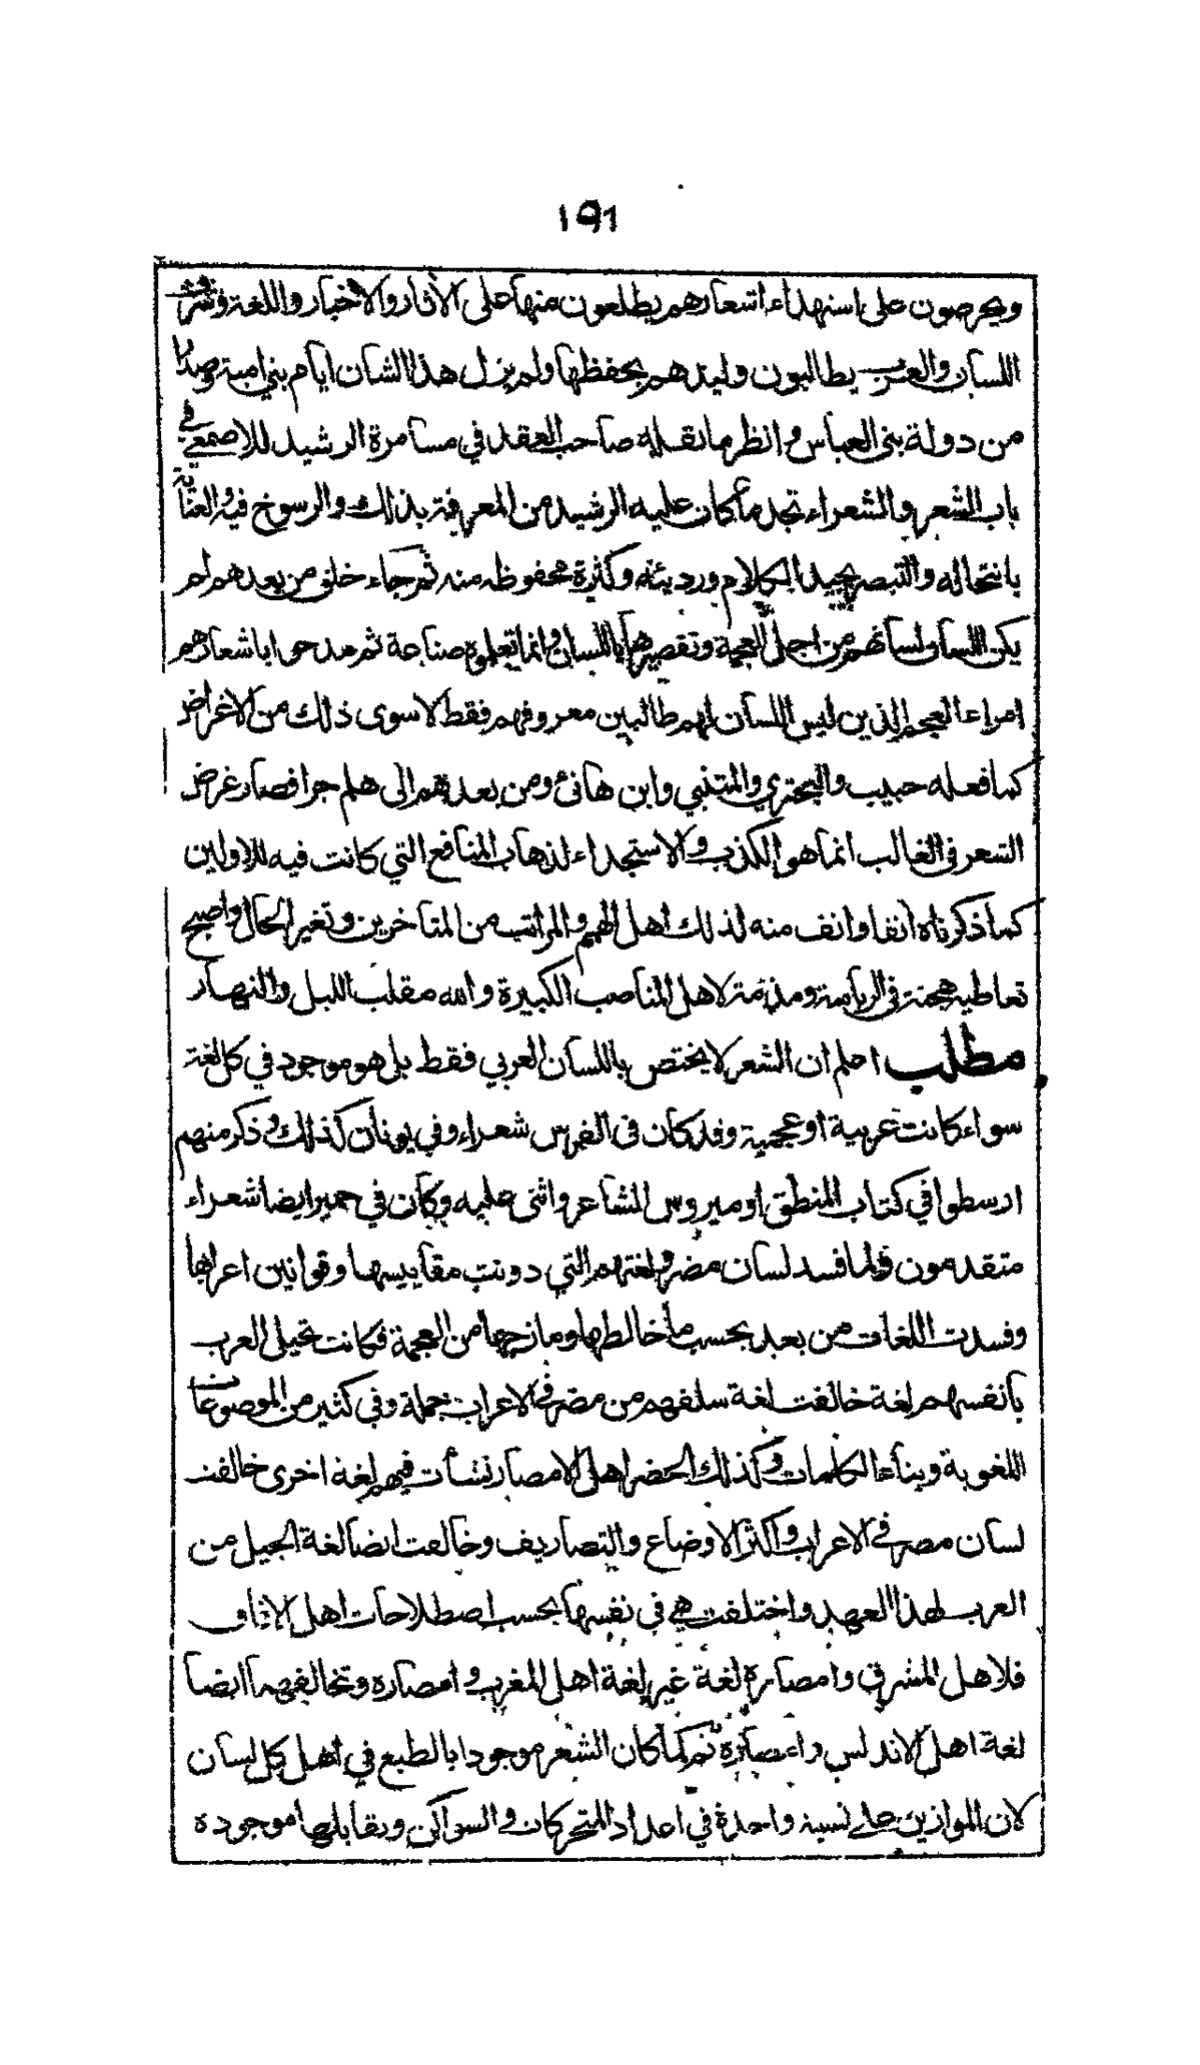 ١٩٦
ويحرصون على استهداء اشعارهم يطلعون منها على الآثار والاخبار واللغة وشرف
اللسان والعرب يطالبون وليدهم بحفظها ولم يزل هذا الشان ايام بني امية وصدرا
من دولة بني العباس وانظر ما نقله صاحب العقد في مسامرة الرشيد للاصمعي في
باب الشعر والشعراء تجد ما كان عليه الرشيد من المعرفة بذلك والرسوخ فيه والعناية
بانتحاله والتبصر بجيد الكلام ورديئه وكثرة محفوظه منه ثم جاء خلق من بعدهم لم
يكن اللسان لسانهم من اجل العجمة وتقصيرها باللسان وانما تعلموه صناعة ثم مدحوا باشعارهم
امراء العجم الذين ليس اللسان لهم طالبين معروفهم فقط لا سوى ذلك من الاغراض
كما فعله حبيب والبحتري والمتنبي وابن هانئ ومن بعدهم الى هلم جرا فصار غرض
الشعر في الغالب انما هو الكذب والاستجداء لذهاب المنافع التي كانت فيه للاولين
كما ذكرناه آنفا وانف منه لذلك اهل الهمم والمراتب من المتأخرين وتغير الحال واصبح
تعاطيه هجنة في الرياسة ومذمة لاهل المناصب الكبيرة والله مقلب الليل والنهار
مطلب اعلم ان الشعر لا يختص باللسان العربي فقط بل هو موجود في كل لغة
سواء كانت عربية او عجمية وقد كان في الفرس شعراء وفي يونان كذلك وذكر منهم
ارسطو في كتاب المنطق اوميروس الشاعر واثنى عليه وكان في حمير ايضا شعراء
متقدمون ولما فسد لسان مضر ولغتهم التي دونت مقاييسها وقوانين اعرابها
وفسدت اللغات من بعد بحسب ما خالطها ومازجها من العجمة فكانت تحيل العرب
بانفسهم لغة خالفت لغة سلفهم من مضر في الاعراب جملة وفي كثير من الموضوعات
اللغوية وبناء الكلمات وكذلك الحضر اهل الامصار نشأت فيهم لغة اخرى خالفت
لسان مضر في الاعراب واكثر الاوضاع والتصاريف وخالفت ايضا لغة الجيل من
العرب لهذا العهد واختلفت هي في نفسها بحسب اصطلاحات اهل الآفاق
فلاهل المشرق وامصاره لغة غير لغة اهل المغرب وامصاره وتخالفهما ايضا
لغة اهل الاندلس وامصاره ثم لما كان الشعر موجودا بالطبع في اهل كل لسان
لان الموازين على نسبة واحدة في اعداد المتحركات والسواكن وتقابلها موجودة